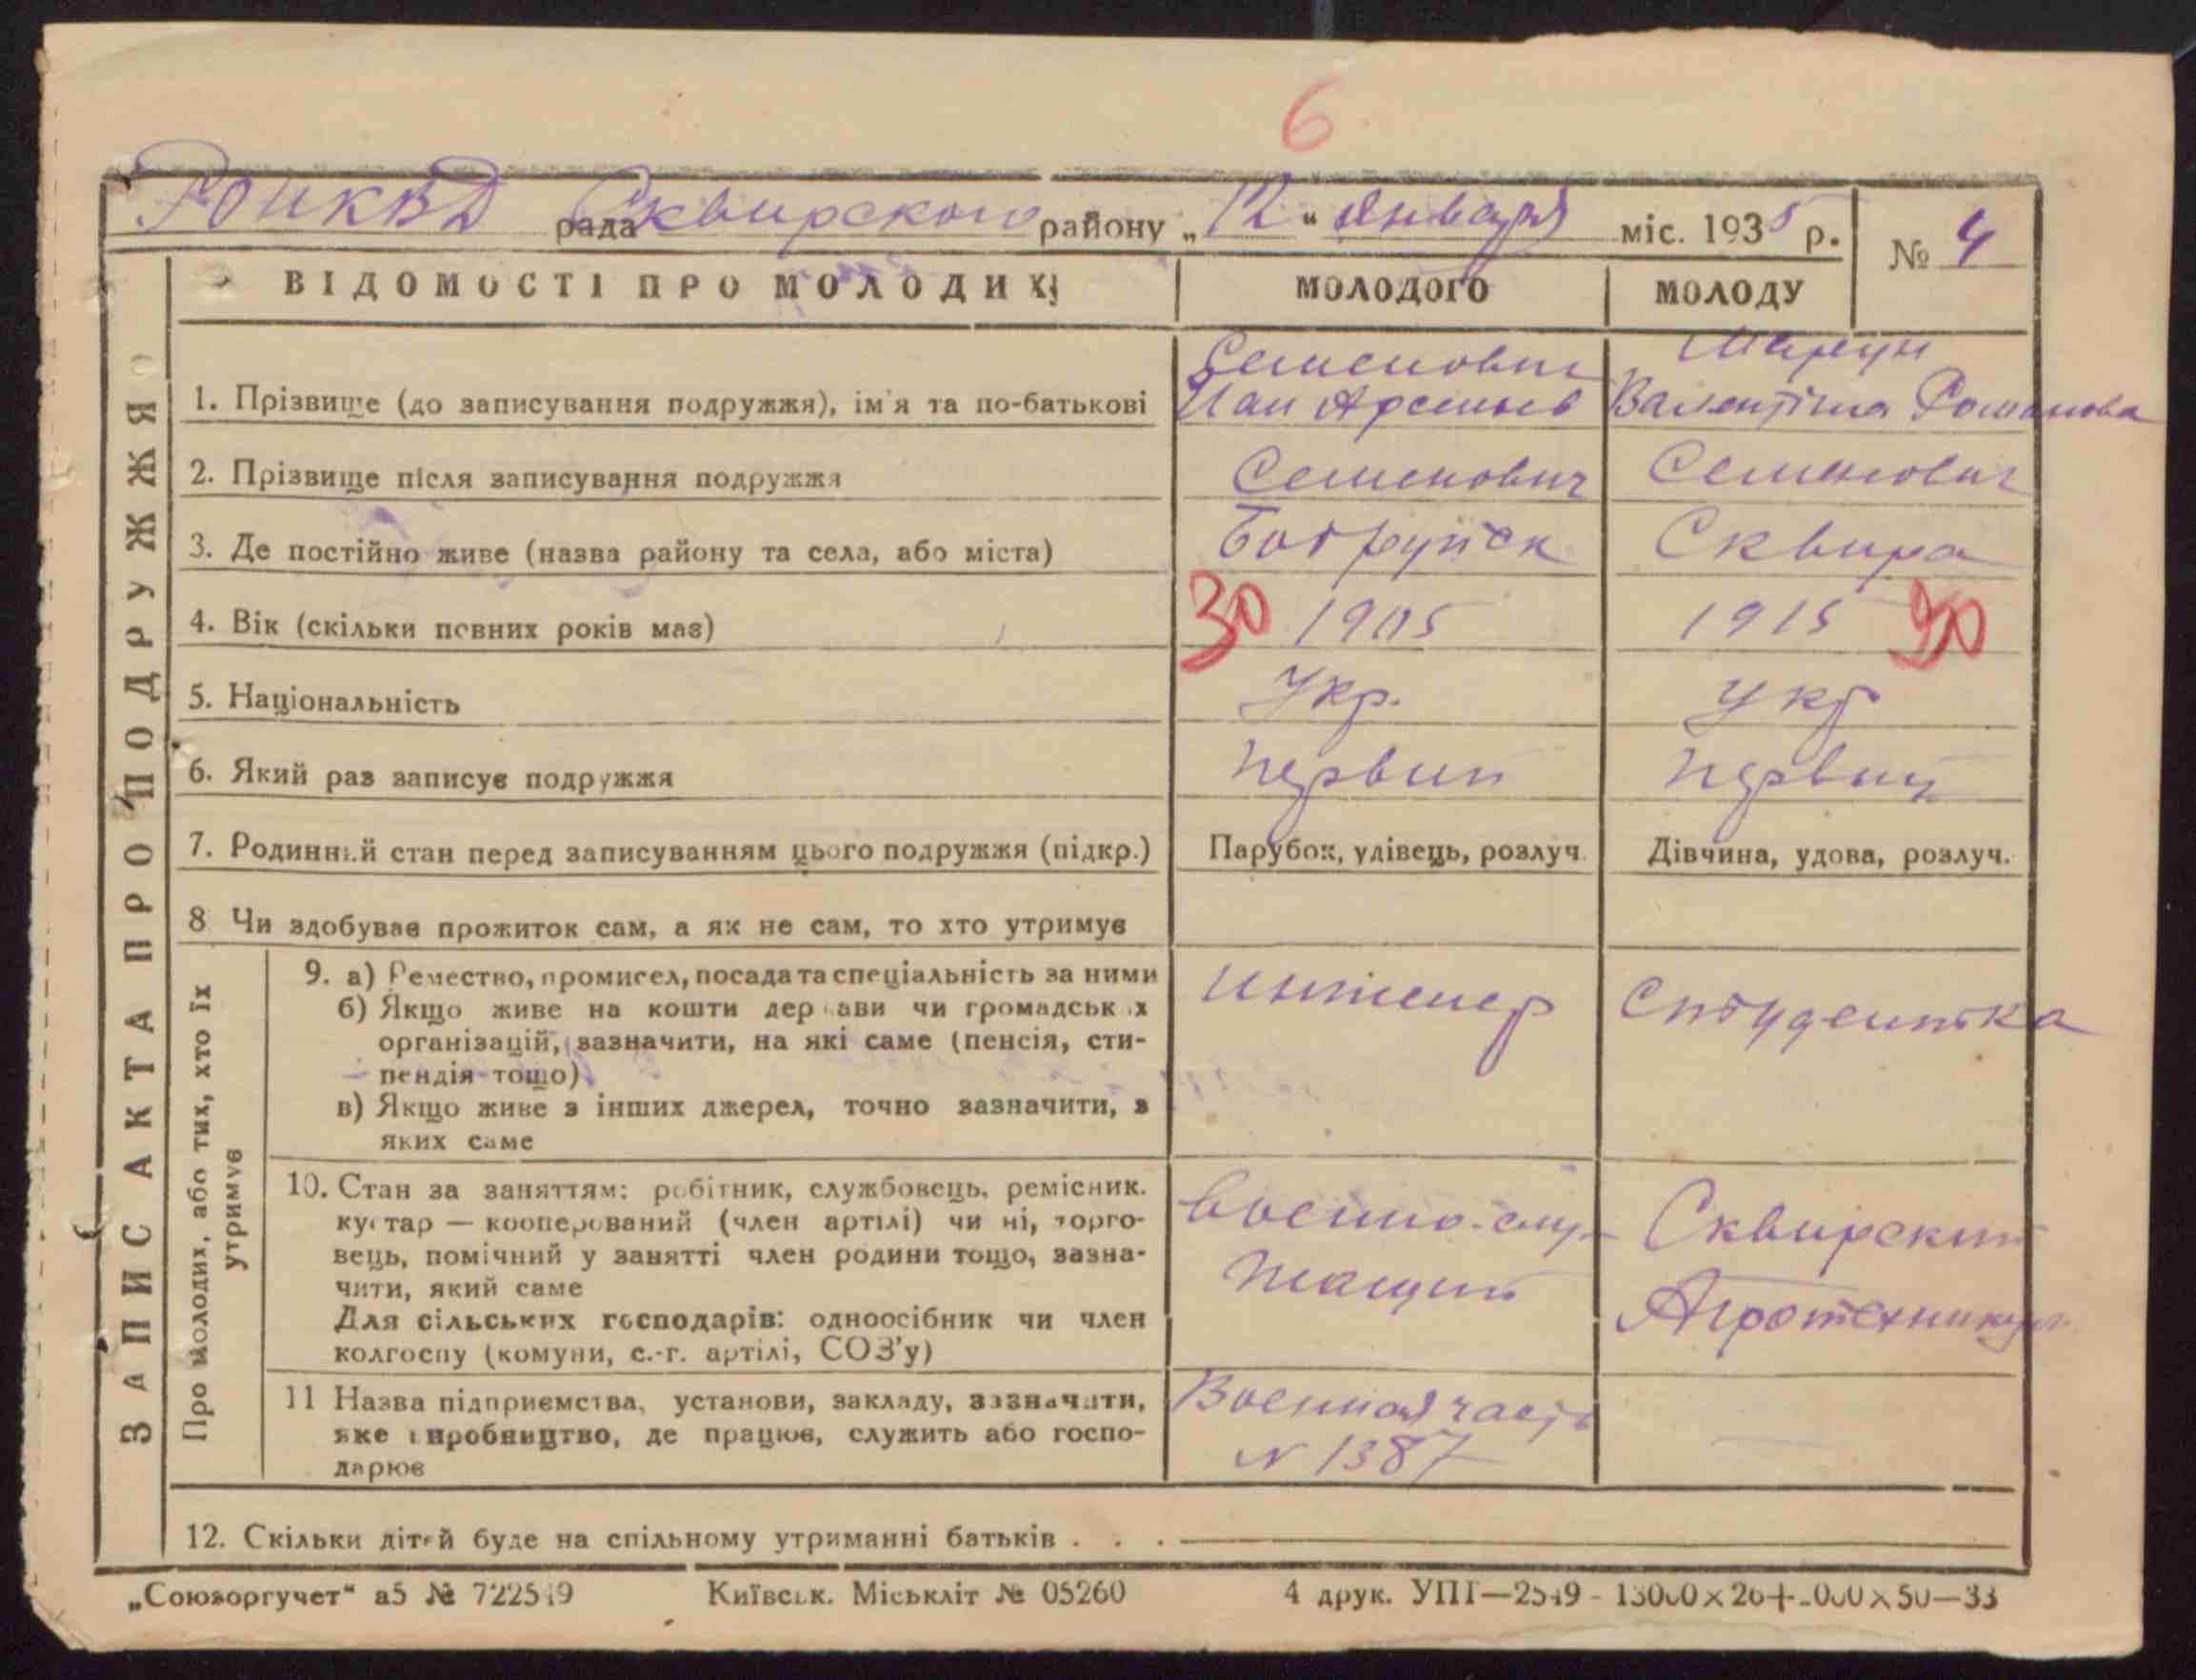 6
РОНКВД рада Сквирского району „12“ января міс. 1935 р.
№ 4
ЗАПИС АКТА ПРО ПОДРУЖЖЯ
ВІДОМОСТІ ПРО МОЛОДИХ
МОЛОДОГО
МОЛОДУ
1. Прізвище (до записування подружжя), ім'я та по-батькові
Семенович
Арсеньев
Валентіна Романова
2. Прізвище після записування подружжя
Семенович
Семенович
3. Де постійно живе (назва району та села, або міста)
Бобруйск
Сквира
4. Вік (скільки повних років має)
30 1905
1915 20
5. Національність
Укр.
Укр
6. Який раз записує подружжя
первий
первий
7. Родинний стан перед записуванням цього подружжя (підкр.)
Парубок, удівець, розлуч.
Дівчина, удова, розлуч.
8 Чи здобуває прожиток сам, а як не сам, то хто утримує
Про молодих, або тих, хто їх
утримує
9. а) Ремество, промисел, посада та спеціальність за ними
б) Якщо живе на кошти держави чи громадських
організацій, зазначити, на які саме (пенсія, сти-
пендія тощо)
в) Якщо живе з інших джерел, точно зазначити, з
яких саме
инженер
Студентка
10. Стан за заняттям: робітник, службовець, ремісник.
кустар — кооперований (член артілі) чи ні, торго-
вець, помічний у занятті член родини тощо, зазна-
чити, який саме
Для сільських господарів: одноосібник чи член
колгоспу (комуни, с.-г. артілі, СОЗ'у)
военно-слу-
жащий
Сквирский
Агротехникум
11 Назва підприємства, установи, закладу, зазначити,
яке виробництво, де працює, служить або госпо-
дарює
Военная часть
N 1387
12. Скільки дітей буде на спільному утриманні батьків . . .
„Союзоргучет“ а5 № 722519 Київськ. Міськліт № 05260 4 друк. УПП—2549